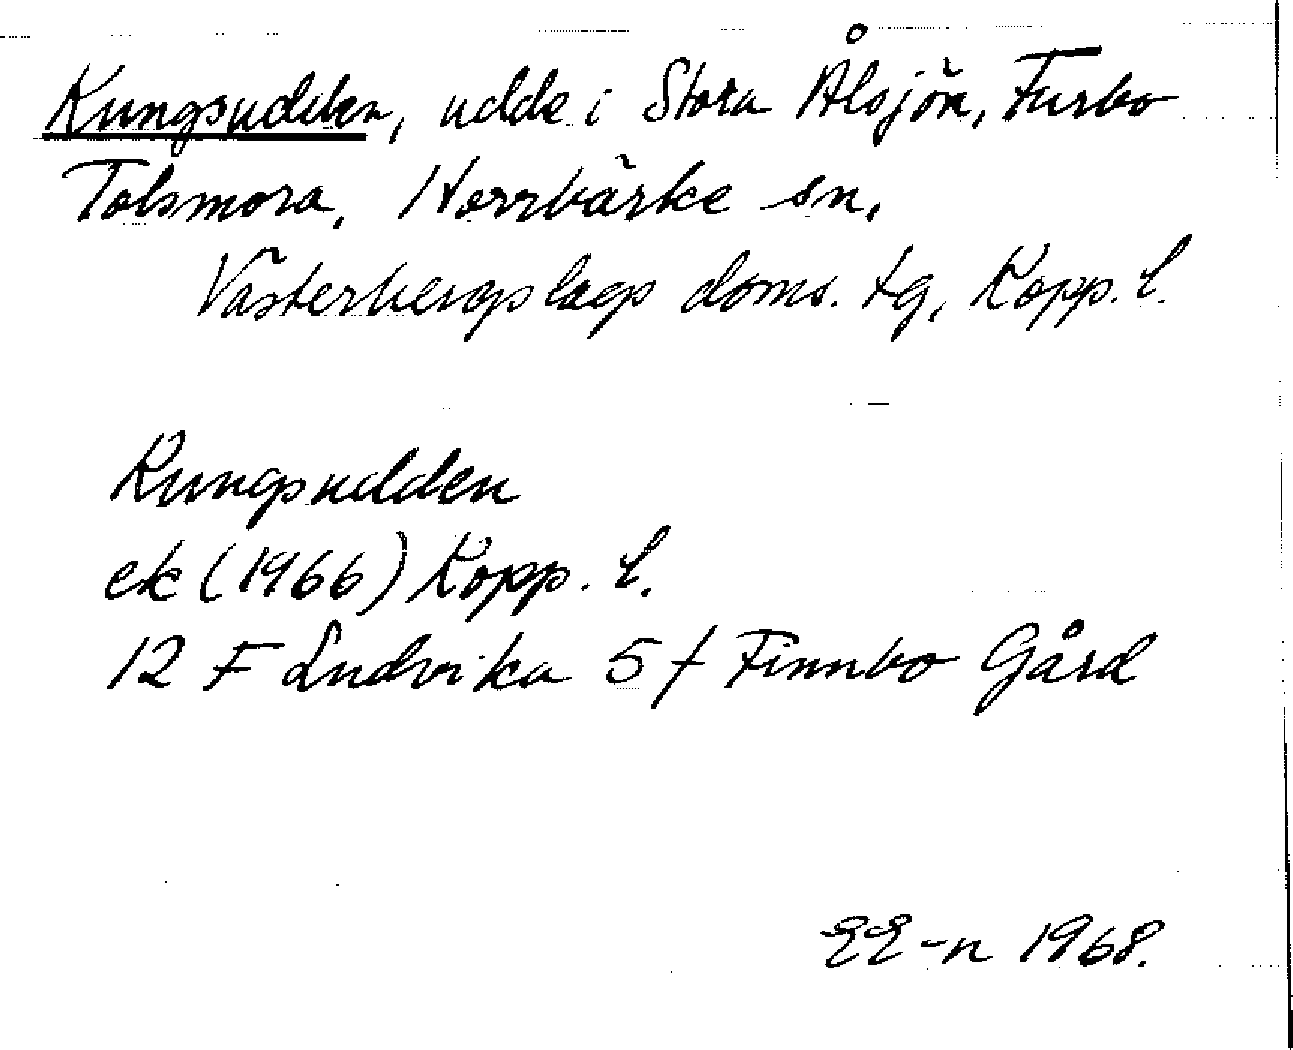 Kungsudden, udde i Stora Ålsjön, Furbo
Tolsmora, Norrbärke sn,
Västerbergslags doms. tg, Kopp. l.
Kungsudden
ek (1966) Kopp. l.
12 F Ludvika 5 f Finnbo Gård
EE-n 1968.